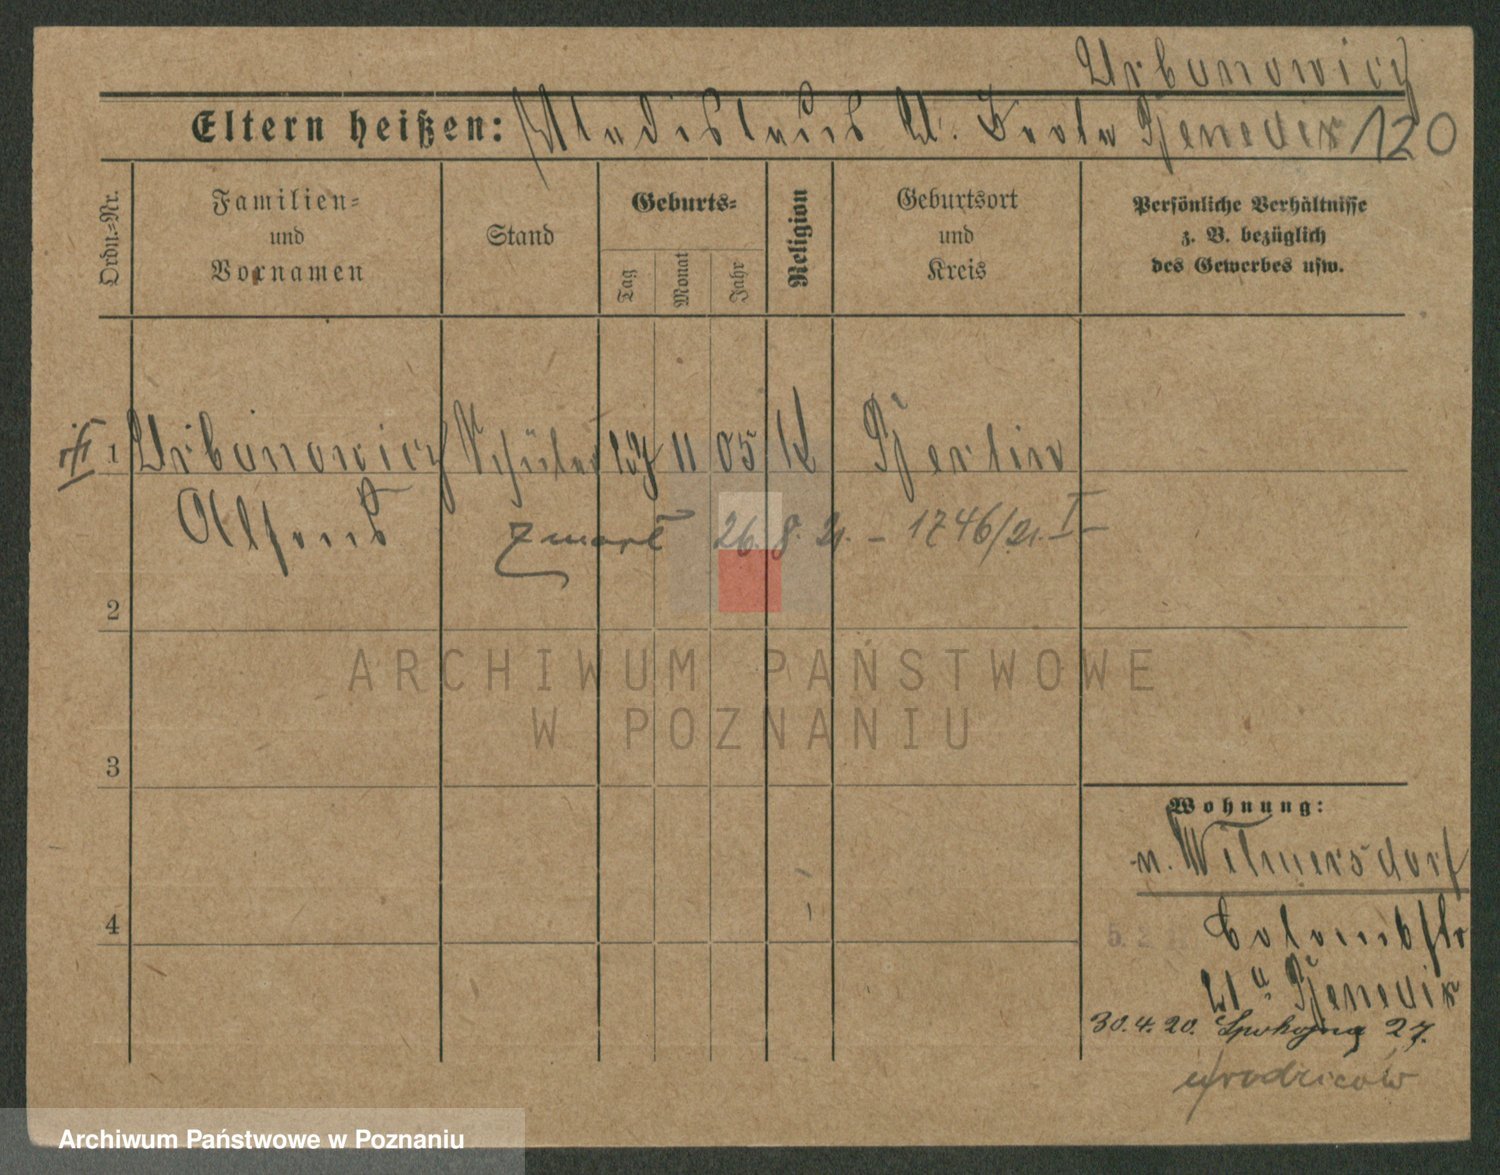 Urbanowicz
Eltern heißen: Wladislaus u. Benedix 120
Ordn.-Nr.
Familien-
und
Vornamen
Stand
Geburts-
Tag
Monat
Jahr
Religion
Geburtsort
und
Kreis
Persönliche Verhältnisse
z. B. bezüglich
des Gewerbes usw.
1 Urbanowicz Schüler 11 05 K Berlin
Alfons
Zmarł 26. 8. 21. – 1746/21. I –
2
ARCHIWUM PAŃSTWOWE
W POZNANIU
3
Wohnung:
n. Wilmersdorf
4
Benedix
30.4.20. Spokojna 27.
u rodziców
Archiwum Państwowe w Poznaniu